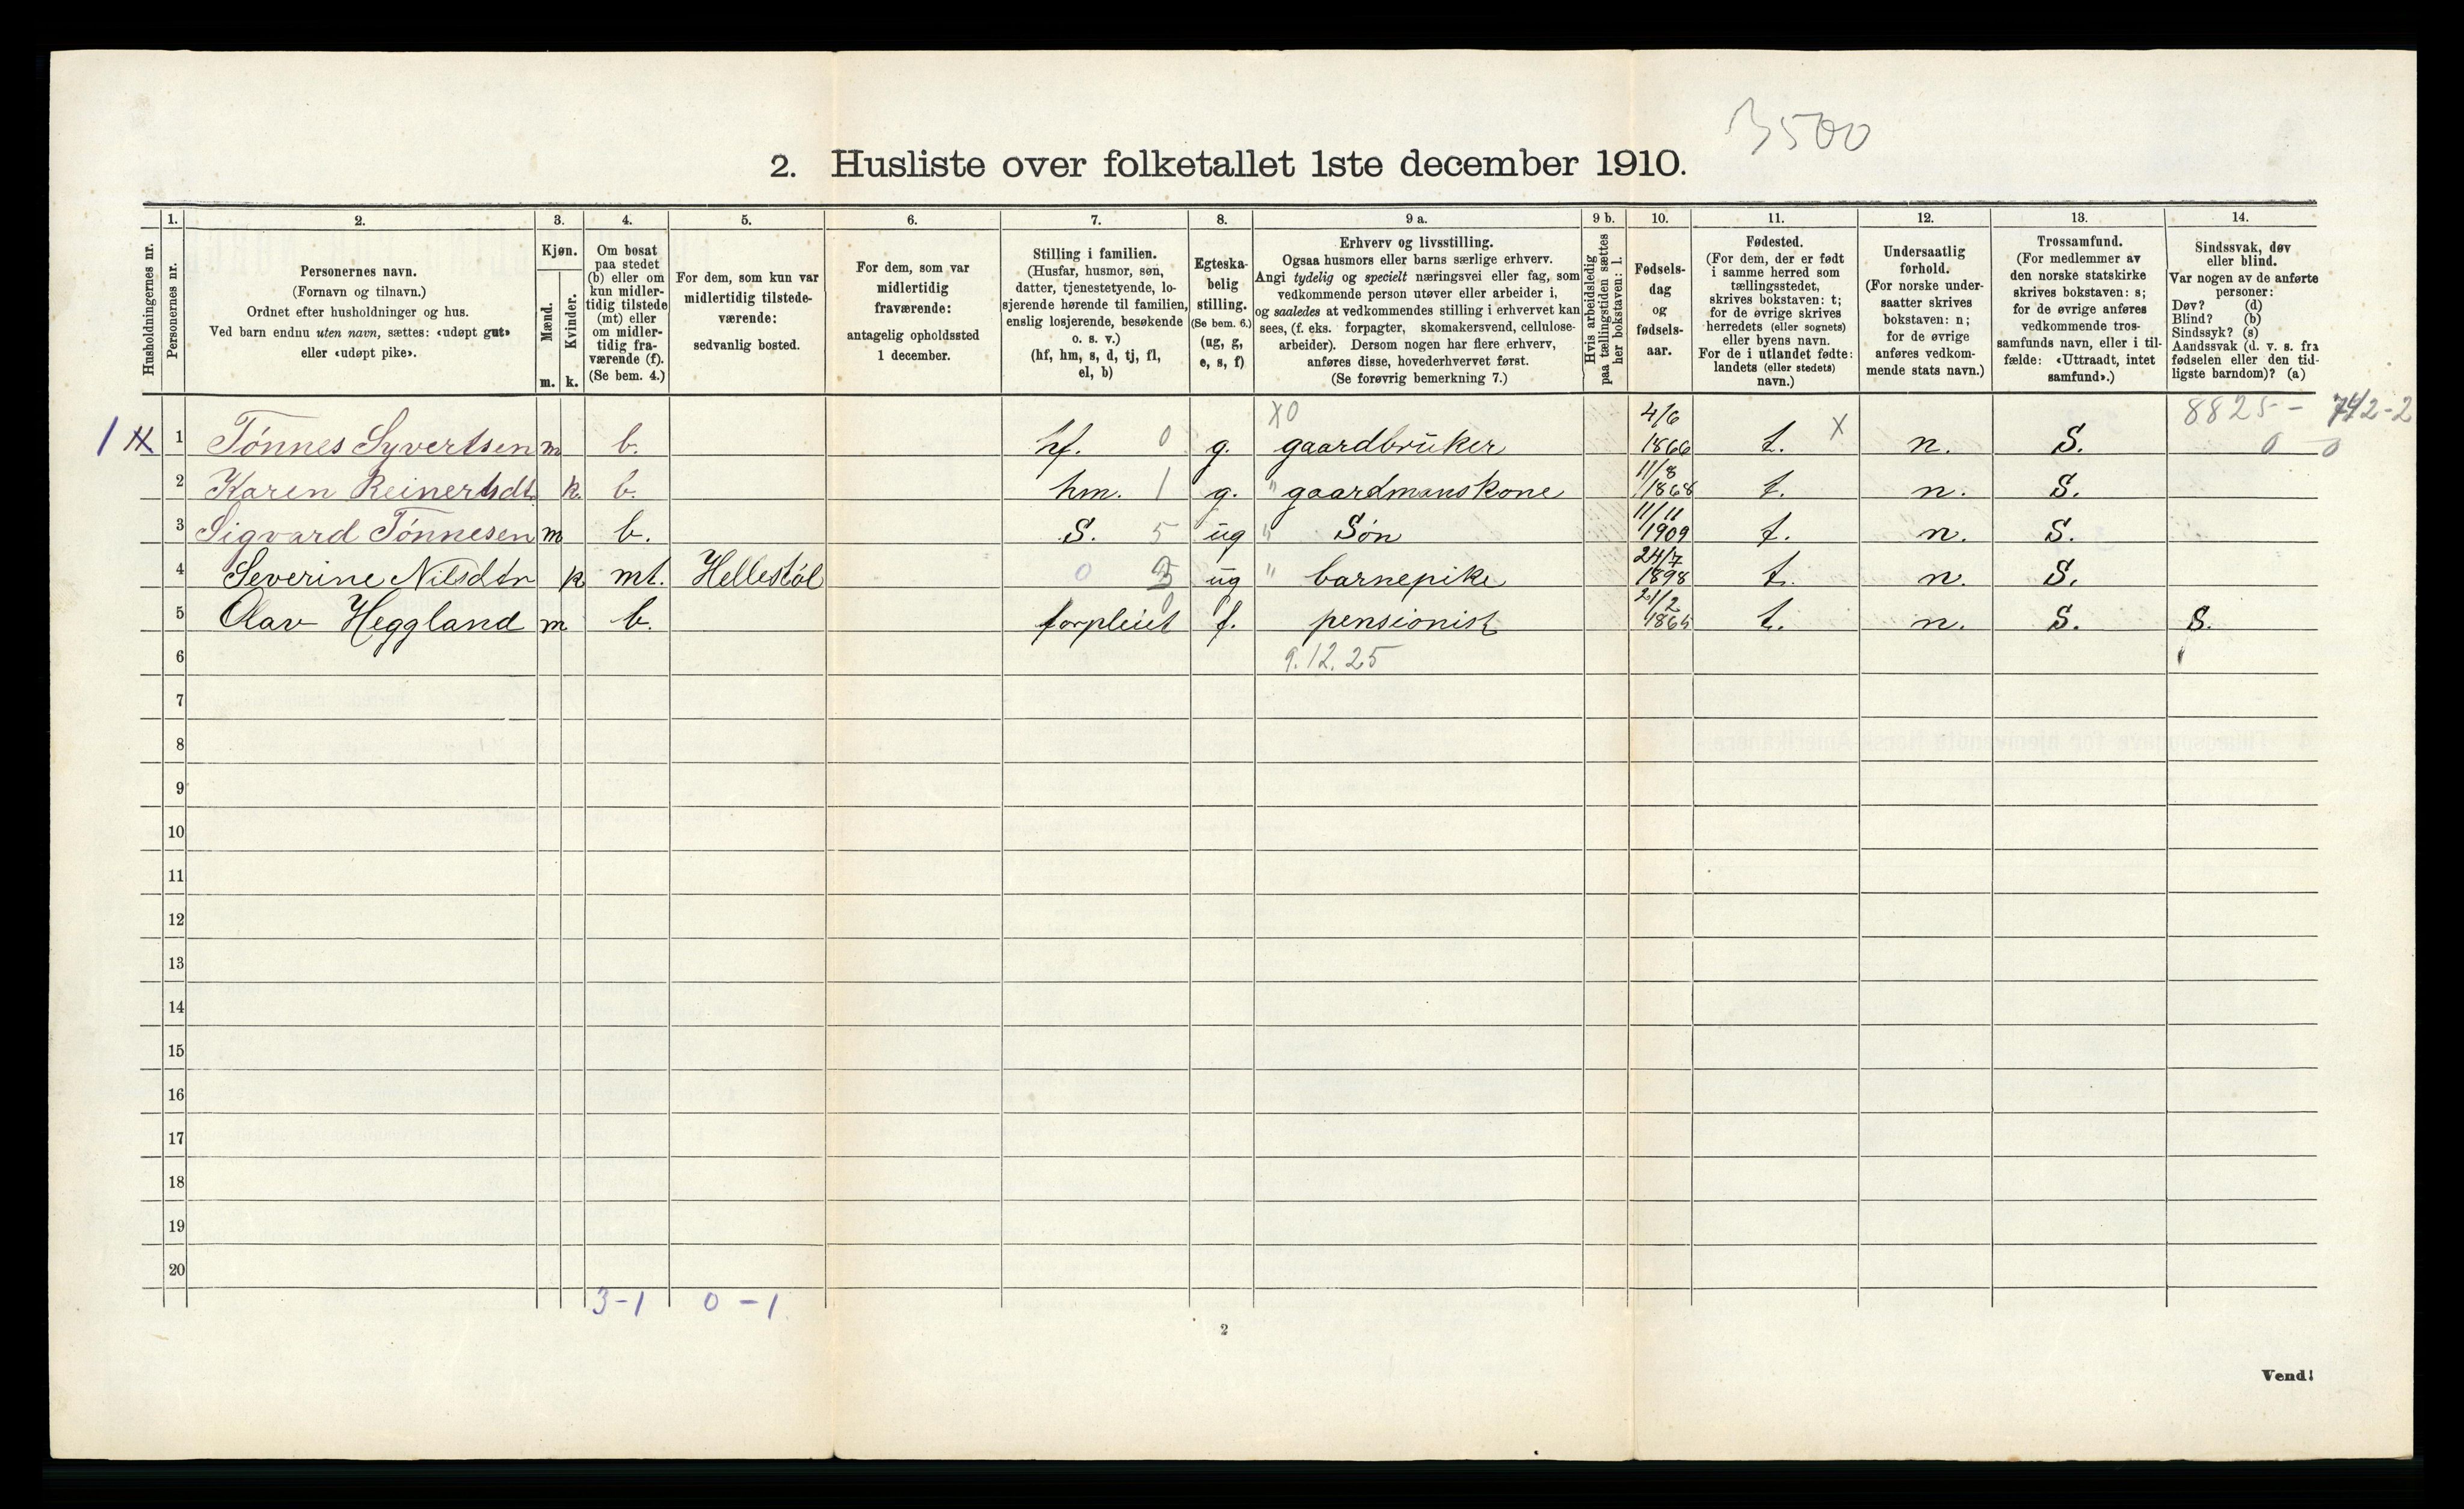 3500
2. Husliste over folketallet 1ste december 1910.
Husholdningernes nr.
1. Personernes nr.
2. Personernes navn.
(Fornavn og tilnavn.)
Ordnet efter husholdninger og hus.
Ved barn endnu uten navn, sættes: «udøpt gut»
eller «udøpt pike».
3. Kjøn.
Mænd. m.
Kvinder. k.
4. Om bosat
paa stedet
(b) eller om
kun midler-
tidig tilstede
(mt) eller
om midler-
tidig fra-
værende (f).
(Se bem. 4.)
5. For dem, som kun var
midlertidig tilstede-
værende:
sedvanlig bosted.
6. For dem, som var
midlertidig
fraværende:
antagelig opholdssted
1 december.
7. Stilling i familien.
(Husfar, husmor, søn,
datter, tjenestetyende, lo-
sjerende hørende til familien,
enslig losjerende, besøkende
o. s. v.)
(hf, hm, s, d, tj, fl,
el, b)
8. Egteska-
belig
stilling.
(Se bem. 6.)
(ug, g,
e, s, f)
9 a. Erhverv og livsstilling.
Ogsaa husmors eller barns særlige erhverv.
Angi tydelig og specielt næringsvei eller fag, som
vedkommende person utøver eller arbeider i,
og saaledes at vedkommendes stilling i erhvervet kan
sees, (f. eks. forpagter, skomakersvend, cellulose-
arbeider). Dersom nogen har flere erhverv,
anføres disse, hovederhvervet først.
(Se forøvrig bemerkning 7.)
9 b. Hvis arbeidsledig
paa tællingstiden sættes
her bokstaven: l.
10. Fødsels-
dag
og
fødsels-
aar.
11. Fødested.
(For dem, der er født
i samme herred som
tællingsstedet,
skrives bokstaven: t;
for de øvrige skrives
herredets (eller sognets)
eller byens navn.
For de i utlandet fødte:
landets (eller stedets)
navn.)
12. Undersaatlig
forhold.
(For norske under-
saatter skrives
bokstaven: n;
for de øvrige
anføres vedkom-
mende stats navn.)
13. Trossamfund.
(For medlemmer av
den norske statskirke
skrives bokstaven: s;
for de øvrige anføres
vedkommende tros-
samfunds navn, eller i til-
fælde: «Uttraadt, intet
samfund».)
14. Sindssvak, døv
eller blind.
Var nogen av de anførte
personer:
Døv? (d)
Blind? (b)
Sindssyk? (s)
Aandssvak (d. v. s. fra
fødselen eller den tid-
ligste barndom)? (a)
X0 8825 - 742-2
1 1 Tønnes Syvertsen m b. hf. 0 g. gaardbruker 4/6 1866 t. X n. S. 0 0
2 Karen Reinertsdt. k b. hm. 1 g. " gaardmanskone 11/8 1868 t. n. S.
3 Sigvard Tønnesen m b. S. 5 ug " Søn 11/11 1909 t. n. S.
4 Severine Nilsdtr k mt. Hellestøl 0 ug " barnepike 24/7 1898 t. n. S.
5 Olav Heggland m b. forpleiet 0 f. pensionist 21/2 t. n. S. S.
6 9.12.25
7
8
9
10
11
12
13
14
15
16
17
18
19
20
3-1 0-1
2
Vend!